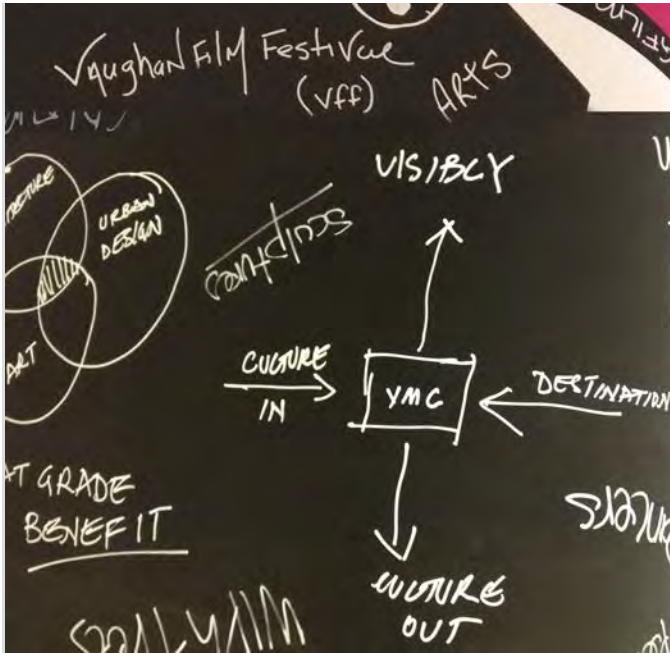 Vaughan Film Festival
(vff)
ARTS
VISIBLY
URBAN
DESIGN
ART
sculptures
CULTURE
IN
VMC
DESTINATION
AT GRADE
BENEFIT
CULTURE
OUT